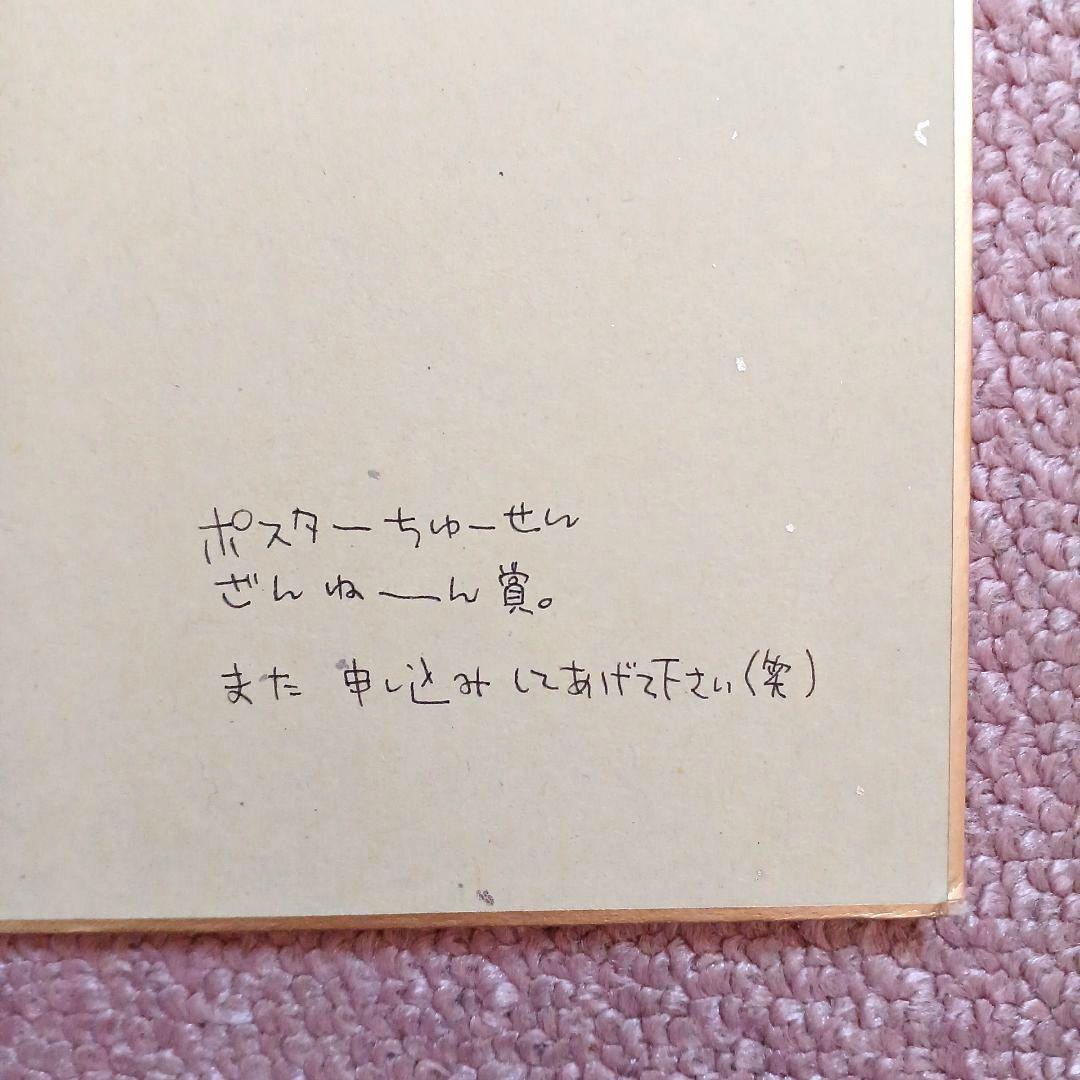 ポスターちゅーせん
ざんねーん賞。
また 申し込みしてあげて下さい(笑)